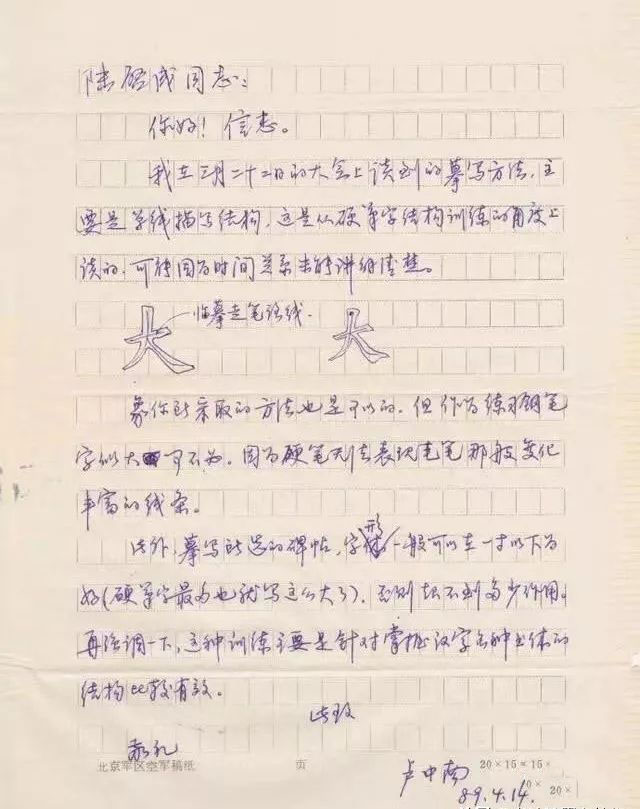 陆啓成同志：
你好！信悉。
我在三月二十二日的大会上谈到的摹写方法，主
要是单线描写结构，这是从硬笔字结构训练的角度上
谈的，可能因为时间关系未能讲得清楚。
大 临摹走笔路线． 大
象你所采取的方法也是可以的，但作为练习钢笔
字似大可不为。因为硬笔无法表现毛笔那般变化
丰富的线条。
此外，摹写所选的碑帖，字形一般可以在一寸以下为
好（硬笔字最大也就写这么大了），否则起不到多少作用。
再强调一下，这种训练主要是针对掌握汉字各种书体的
结构比较有效。
此致
敬礼
卢中南
89.4.14.
北京军区空军稿纸 页 20×15=15×
20×